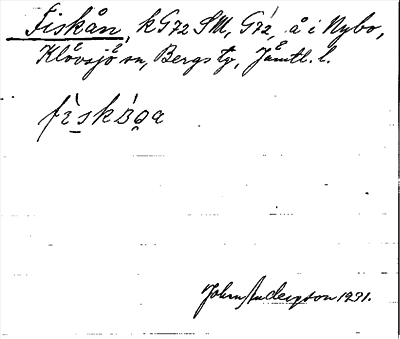 Fiskån, kG72 SM, G72, å i Nybo,
Klövsjö sn, Bergs tg, Jämtl. l.
John Anderzson 1931.